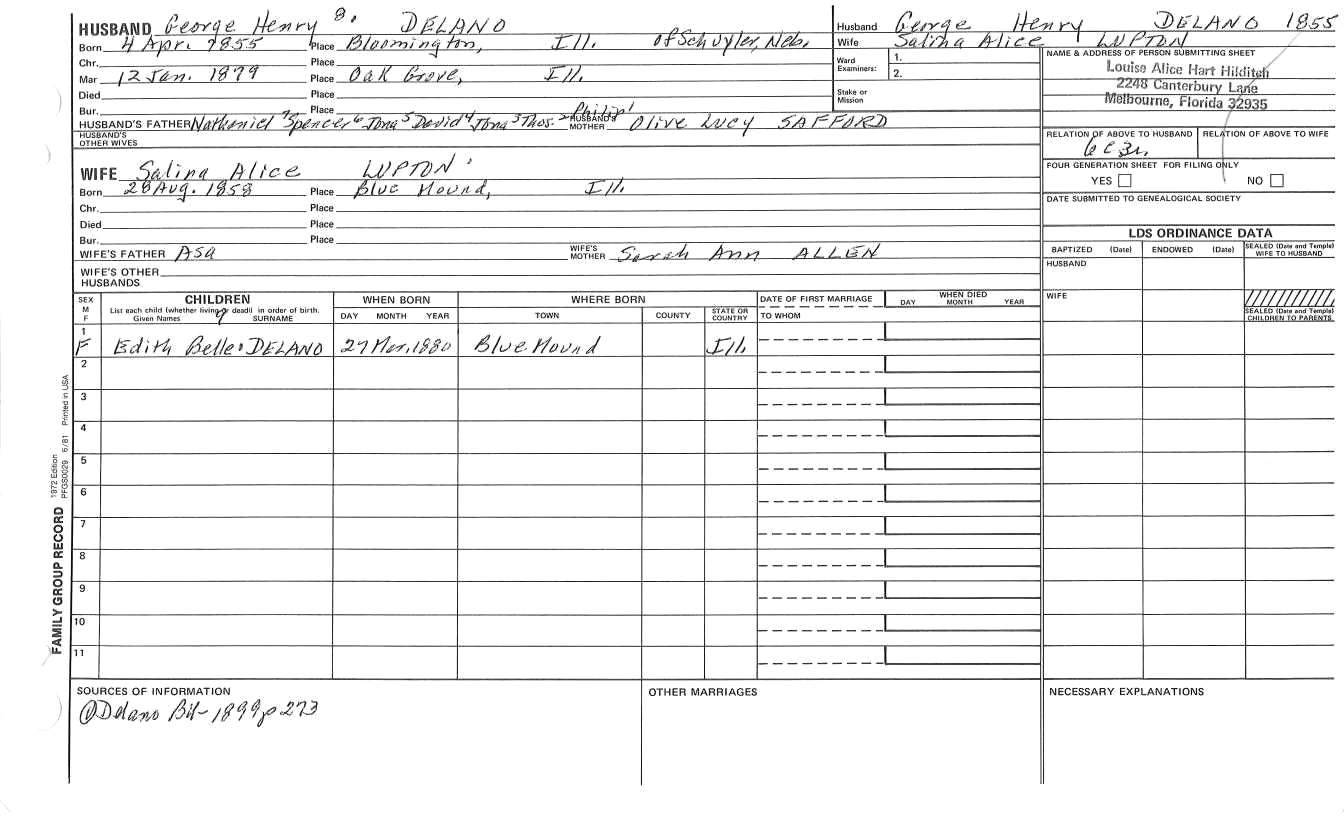 HUSBAND George Henry 8. DELANO
Born 4 Apr. 1855 Place Bloomington, Ill. of Schuyler, Neb.
Chr. Place
Mar 12 Jan. 1879 Place Oak Grove, Ill.
Died Place
Bur. Place
HUSBAND'S FATHER Nathaniel 7 Spencer 6 Jona 5 David 4 Jona 3 Thos. 2 Philip 1 HUSBAND'S MOTHER Olive Lucy SAFFORD
HUSBAND'S OTHER WIVES
WIFE Salina Alice LUPTON
Born 28 Aug. 1858 Place Blue Mound, Ill.
Chr. Place
Died Place
Bur. Place
WIFE'S FATHER Asa WIFE'S MOTHER Sarah Ann ALLEN
WIFE'S OTHER HUSBANDS
Husband George Henry DELANO 1855
Wife Salina Alice LUPTON
Ward Examiners: 1.
2.
Stake or Mission
NAME & ADDRESS OF PERSON SUBMITTING SHEET
Louise Alice Hart Hilditch
2248 Canterbury Lane
Melbourne, Florida 32935
RELATION OF ABOVE TO HUSBAND RELATION OF ABOVE TO WIFE
6C3r.
FOUR GENERATION SHEET FOR FILING ONLY
YES NO
DATE SUBMITTED TO GENEALOGICAL SOCIETY
LDS ORDINANCE DATA
BAPTIZED (Date) ENDOWED (Date) SEALED (Date and Temple) WIFE TO HUSBAND
HUSBAND
WIFE
SEALED (Date and Temple) CHILDREN TO PARENTS
SEX M F CHILDREN WHEN BORN WHERE BORN DATE OF FIRST MARRIAGE WHEN DIED
List each child (whether living or dead) in order of birth.
Given Names 9 SURNAME DAY MONTH YEAR TOWN COUNTY STATE OR COUNTRY TO WHOM DAY MONTH YEAR
1
F Edith Belle DELANO 27 Mar. 1880 Blue Mound Ill.
2
3
4
5
6
7
8
9
10
11
FAMILY GROUP RECORD 1972 Edition PFGS0029 6/81 Printed in USA
SOURCES OF INFORMATION
① Delano 1899 p 273
OTHER MARRIAGES
NECESSARY EXPLANATIONS